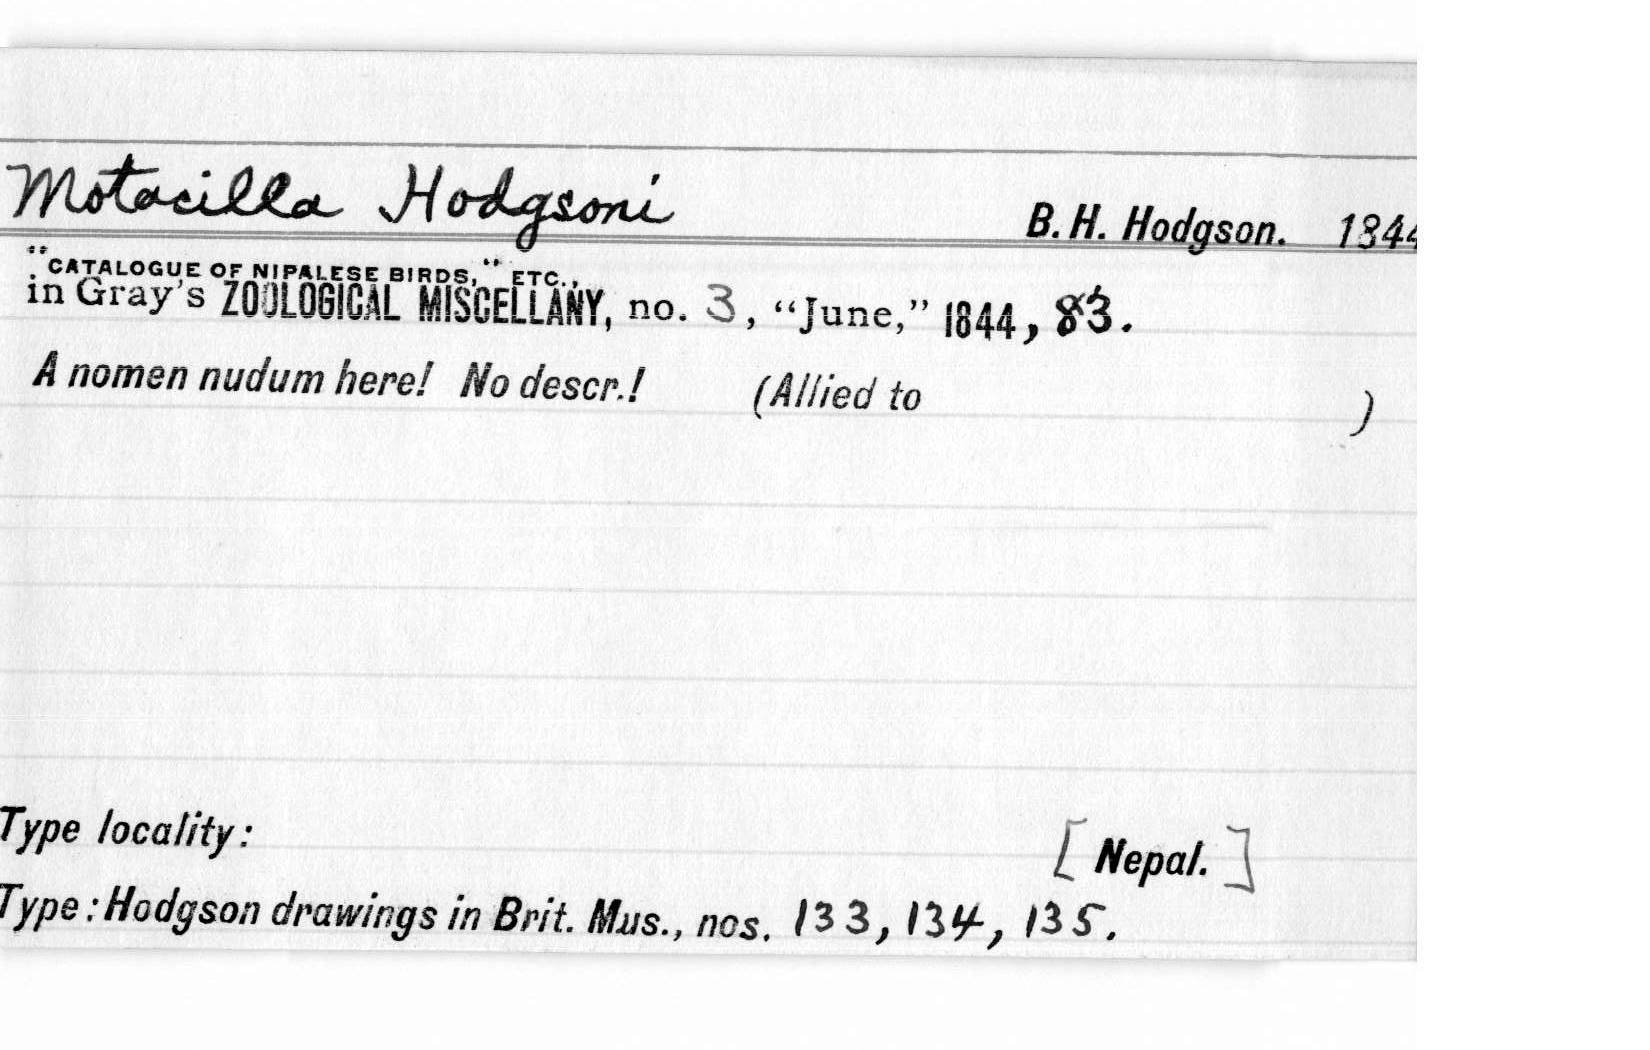 Motacilla Hodgsoni B. H. Hodgson. 1844
"CATALOGUE OF NIPALESE BIRDS," ETC.,
in Gray's ZOOLOGICAL MISCELLANY, no. 3, "June," 1844, 83.
A nomen nudum here! No descr.! (Allied to )
Type locality: [Nepal.]
Type: Hodgson drawings in Brit. Mus., nos. 133, 134, 135.